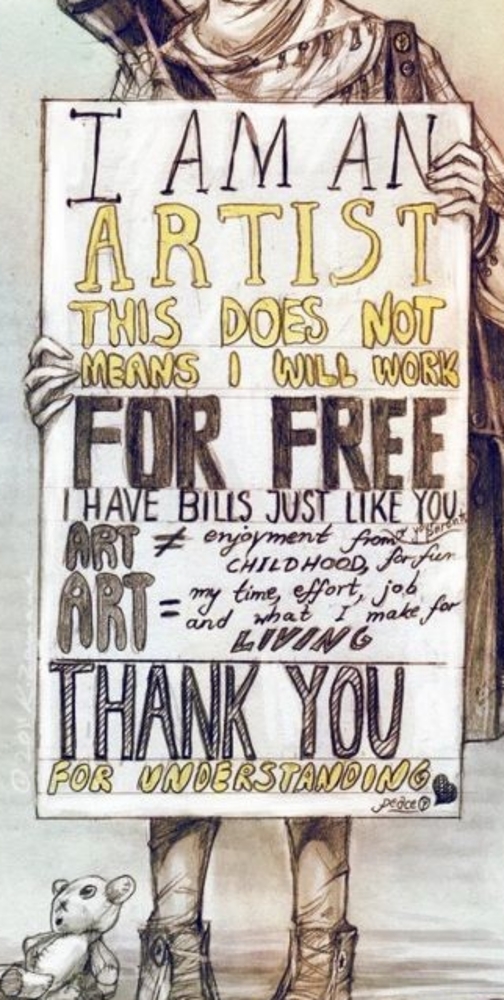 I AM AN
ARTIST
THIS DOES NOT
MEANS I WILL WORK
FOR FREE
I HAVE BILLS JUST LIKE YOU
or your parents
ART ≠ enjoyment from
CHILDHOOD, for fun
ART = my time, effort, job
and what I make for
LIVING
THANK YOU
FOR UNDERSTANDING
peace